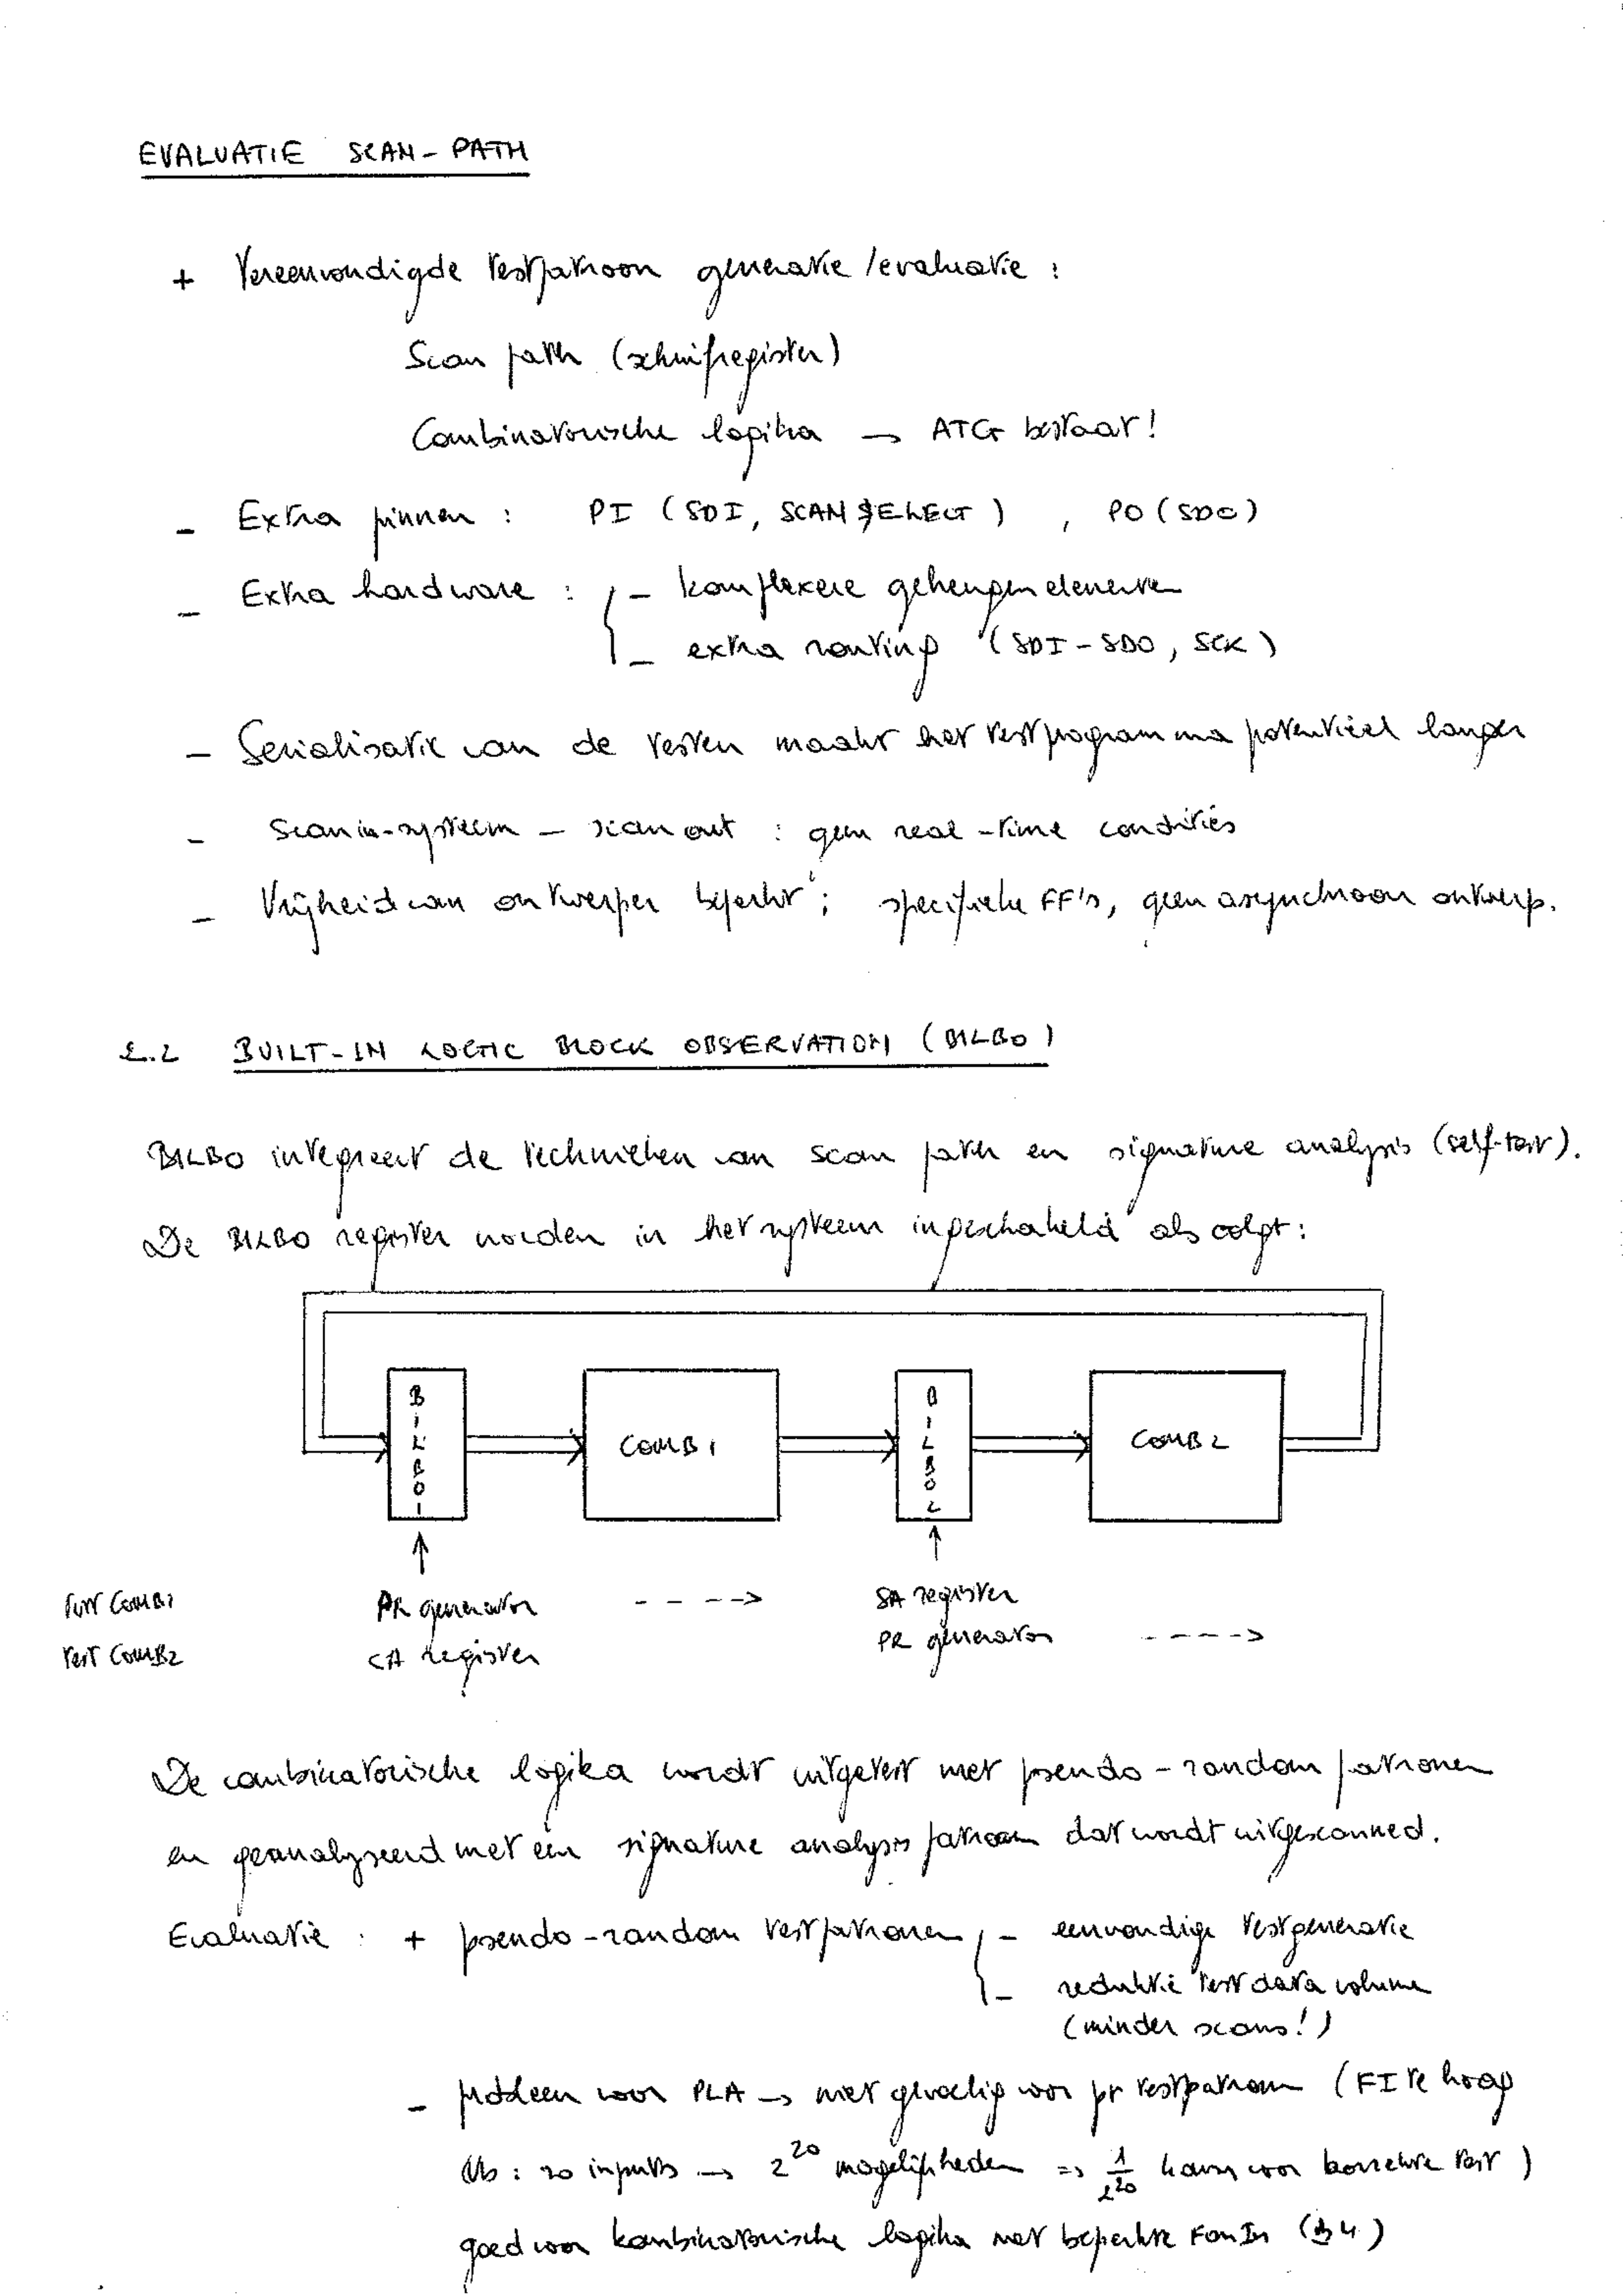 EVALUATIE SCAN-PATH
+ Vereenvoudigde testpatroon generatie/evaluatie :
Scan path (schuifregister)
Combinatorische logika → ATG bestaat!
- Extra pinnen : PI (SDI, SCAN SELECT) , PO (SDO)
- Extra hardware : - komplexere geheugenelementen
- extra routing (SDI-SDO, SCK)
- Serialisatie van de testen maakt het testprogramma potentieel langer
- scan in-systeem - scan out : geen real-time condities
- Vrijheid van ontwerper beperkt ; specifieke FF's, geen asynchroon ontwerp.
2.2 BUILT-IN LOGIC BLOCK OBSERVATION (BILBO)
BILBO integreert de technieken van scan path en signature analysis (self-test).
De BILBO register worden in het systeem ingeschakeld als volgt:
BILBO1 COMB1 BILBO2 COMB2
Test COMB1 PR generator ----> SA register
Test COMB2 SA Register PR generator ---->
De combinatorische logika wordt uitgetest met pseudo-random patronen
en geanalyseerd met een signature analysis patroon dat wordt uitgescanned.
Evaluatie : + pseudo-random testpatronen - eenvoudige testgeneratie
- reduktie test data volume
(minder scans!)
- probleem voor PLA → niet gevoelig voor pr testpatroon (FI te hoog
Vb : 20 inputs → 2^20 mogelijkheden => 1/2^20 kans voor korrekte test )
goed voor kombinatorische logika met beperkte Fan In (